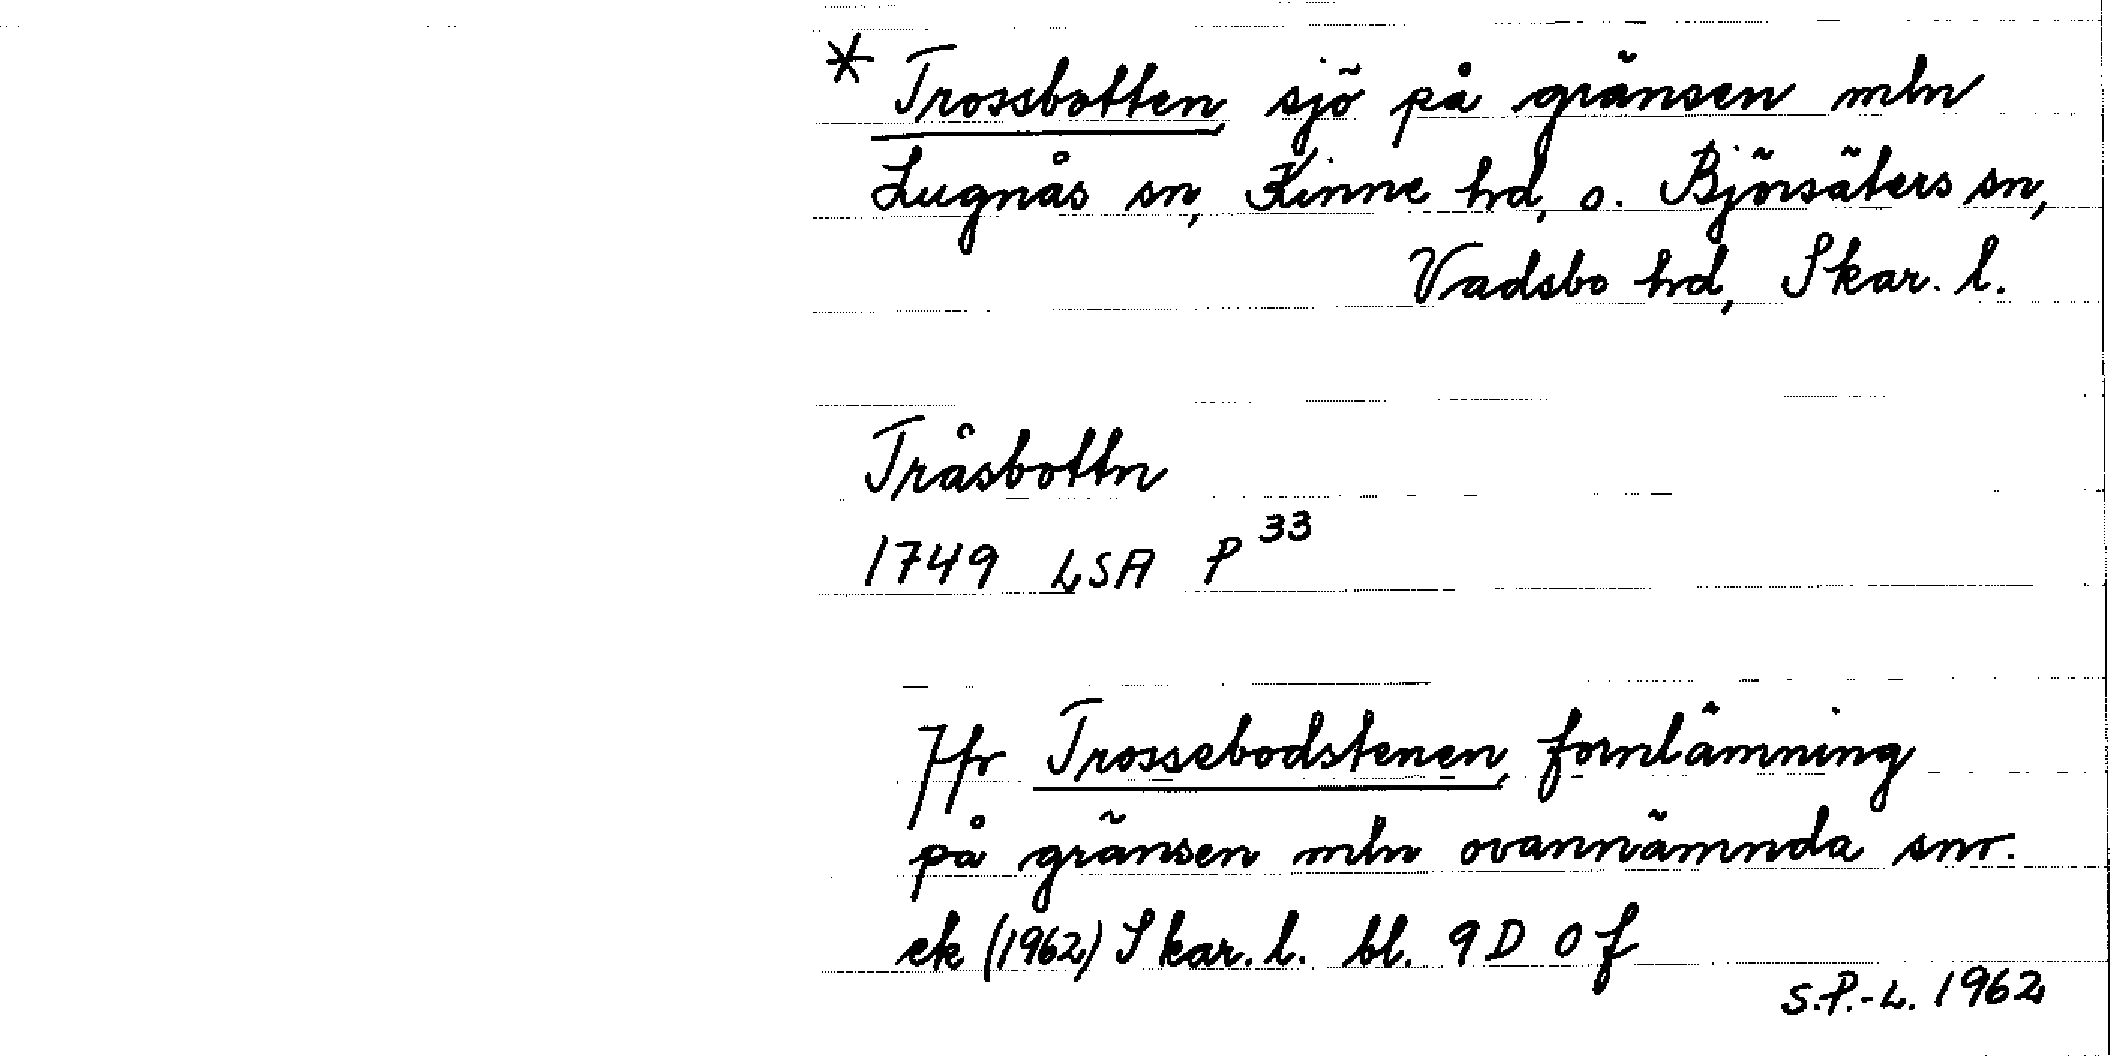 * Trossbotten, sjö på gränsen mln
Lugnås sn, Kinne hd, o. Björsäters sn,
Vadsbo hd, Skar. l.
Tråsbottn
1749 LSA P 33
Jfr Trossebodstenen, fornlämning
på gränsen mln ovannämnda snr.
ek (1962) Skar. l. bl. 9 D 0 f
S.P.-L. 1962